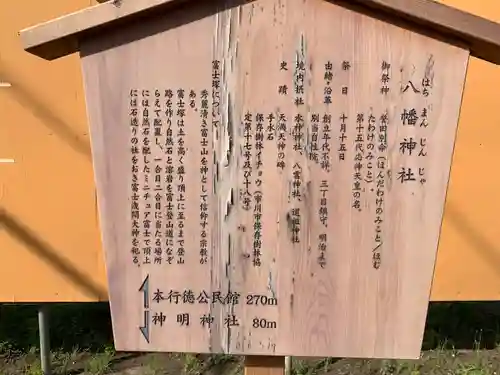 はち まん じん じゃ
八幡神社
御祭神 誉田別命（ほんだわけのみこと／ほむ
たわけのみこと）。
第十五代応神天皇の名。
祭日 十月十五日
由緒・沿革 創立年代不詳。三丁目鎮守。明治まで
別当自性院。
境内摂社 水神神社、八雲神社、道祖神社
史蹟 天満天神の碑
手水石
保存樹林イチョウ（市川市保存樹林協
定第十七号及び十八号）
富士塚について
秀麗清き富士山を神として信仰する宗教が
ある。
富士塚は土を高く盛り頂上に至るまで登山
路を作り自然石と溶岩を富士登山道になぞ
らえて配置し、一合目二合目に当たる場所
には自然石を配したミニチュア富士で頂上
には石造りの社をおき富士浅間大神を祀る。
本行徳公民館 270m
神明神社 80m